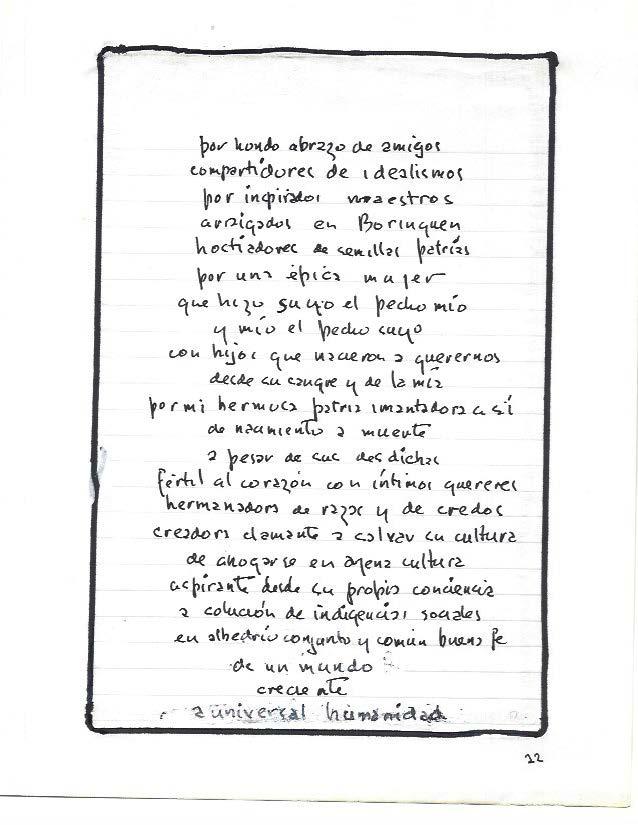 por hondo abrazo de amigos
compartidores de idealismos
por inspirados maestros
arraigados en Borinquen
hostiadores de semillas patrias
por una épica mujer
que hizo suyo el pecho mío
y mío el pecho suyo
con hijos que nacieron a querernos
desde su sangre y de la mía
por mi hermosa patria imantadora a sí
de nacimiento a muerte
a pesar de sus desdichas
fértil al corazón con íntimos quereres
hermanadora de razas y de credos
creadora clamante a salvar su cultura
de ahogarse en ajena cultura
aspirante desde su propia conciencia
a solución de indigencias sociales
en albedrío conjunto y común buena fe
de un mundo
creciente
a universal humanidad
22